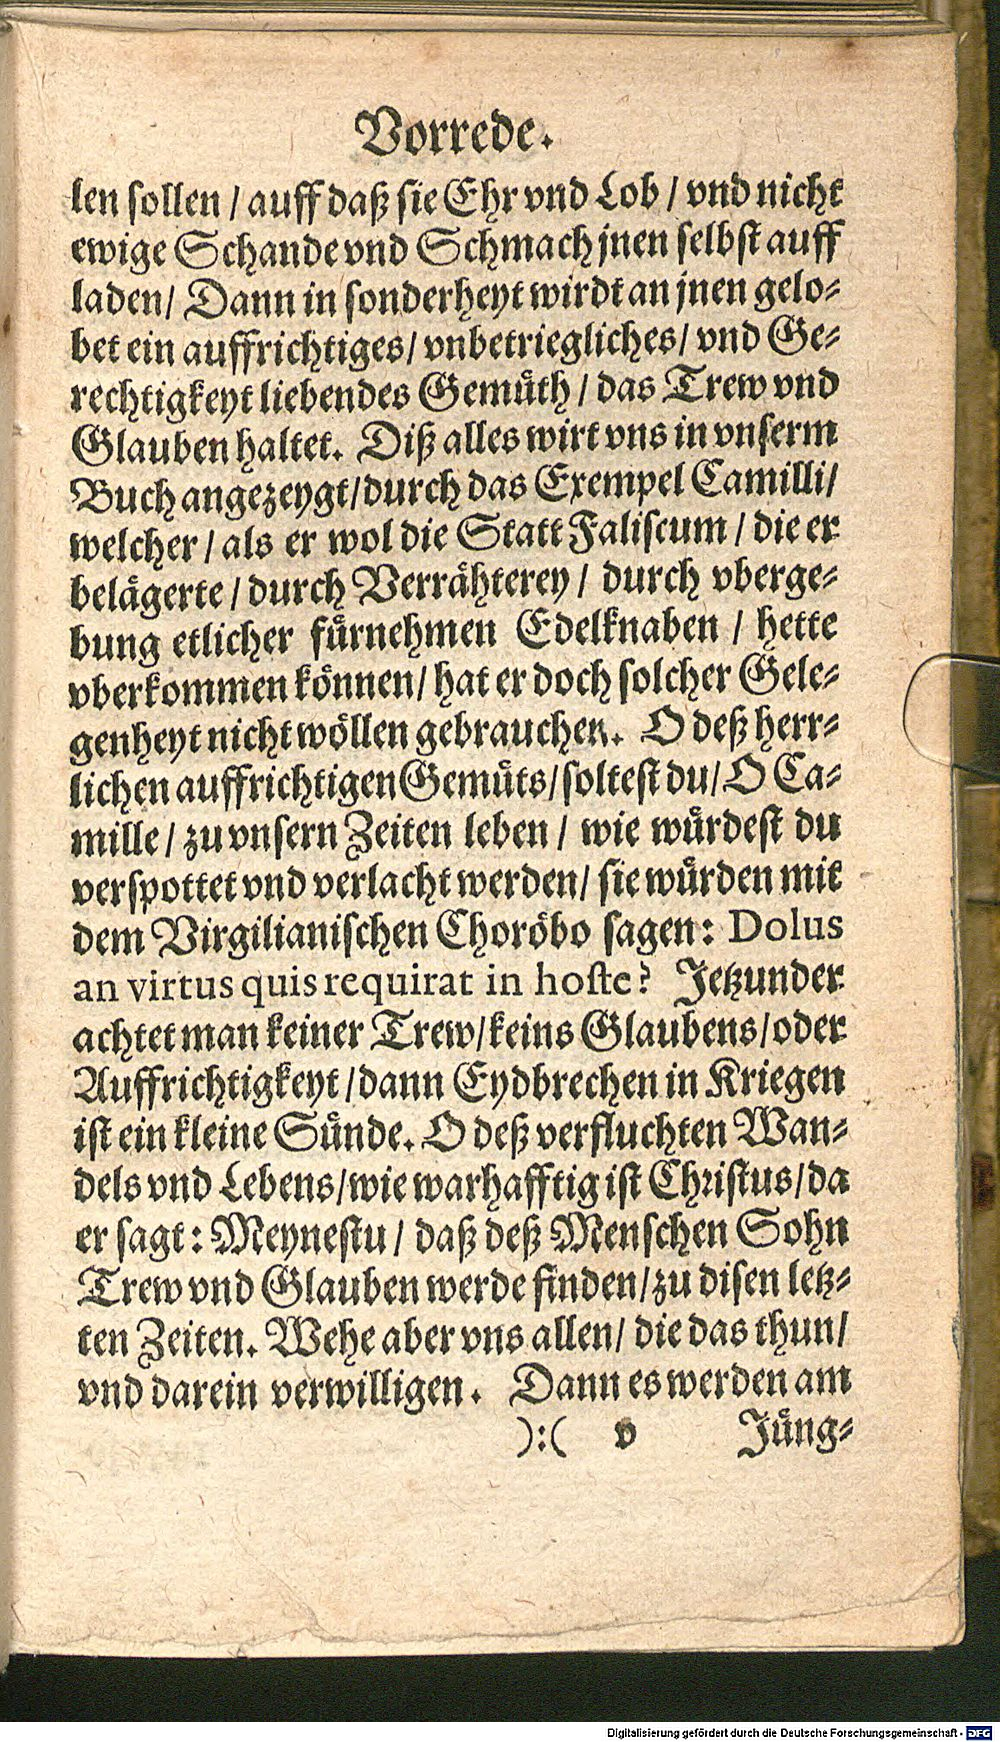 Vorrede.
len sollen / auff daß sie Ehr vnd Lob / vnd nicht
ewige Schande vnd Schmach jnen selbst auff
laden / Dann in sonderheyt wirdt an jnen gelo-
bet ein auffrichtiges / vnbetriegliches / vnd Ge-
rechtigkeyt liebendes Gemüth / das Trew vnd
Glauben haltet. Diß alles wirt vns in vnserm
Buch angezeygt / durch das Exempel Camilli /
welcher / als er wol die Statt Faliscum / die er
belägerte / durch Verrähterey / durch vberge-
bung etlicher fürnehmen Edelknaben / hette
vberkommen können / hat er doch solcher Gele-
genheyt nicht wöllen gebrauchen. O deß herr-
lichen auffrichtigen Gemüts / soltest du / O Ca-
mille / zu vnsern Zeiten leben / wie würdest du
verspottet vnd verlacht werden / sie würden mit
dem Virgilianischen Choröbo sagen: Dolus
an virtus quis requirat in hoste? Jetzunder
achtet man keiner Trew / keins Glaubens / oder
Auffrichtigkeyt / dann Eydbrechen in Kriegen
ist ein kleine Sünde. O deß verfluchten Wan-
dels vnd Lebens / wie warhafftig ist Christus / da
er sagt: Meynestu / daß deß Menschen Sohn
Trew vnd Glauben werde finden / zu disen letz-
ten Zeiten. Wehe aber vns allen / die das thun /
vnd darein verwilligen. Dann es werden am
):( v Jüng-
Digitalisierung gefördert durch die Deutsche Forschungsgemeinschaft - DFG